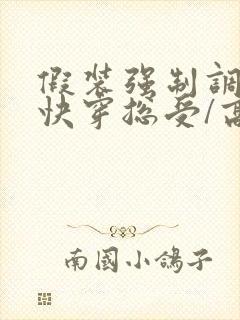 假装强制調
快穿总受/高
南國小鴿子